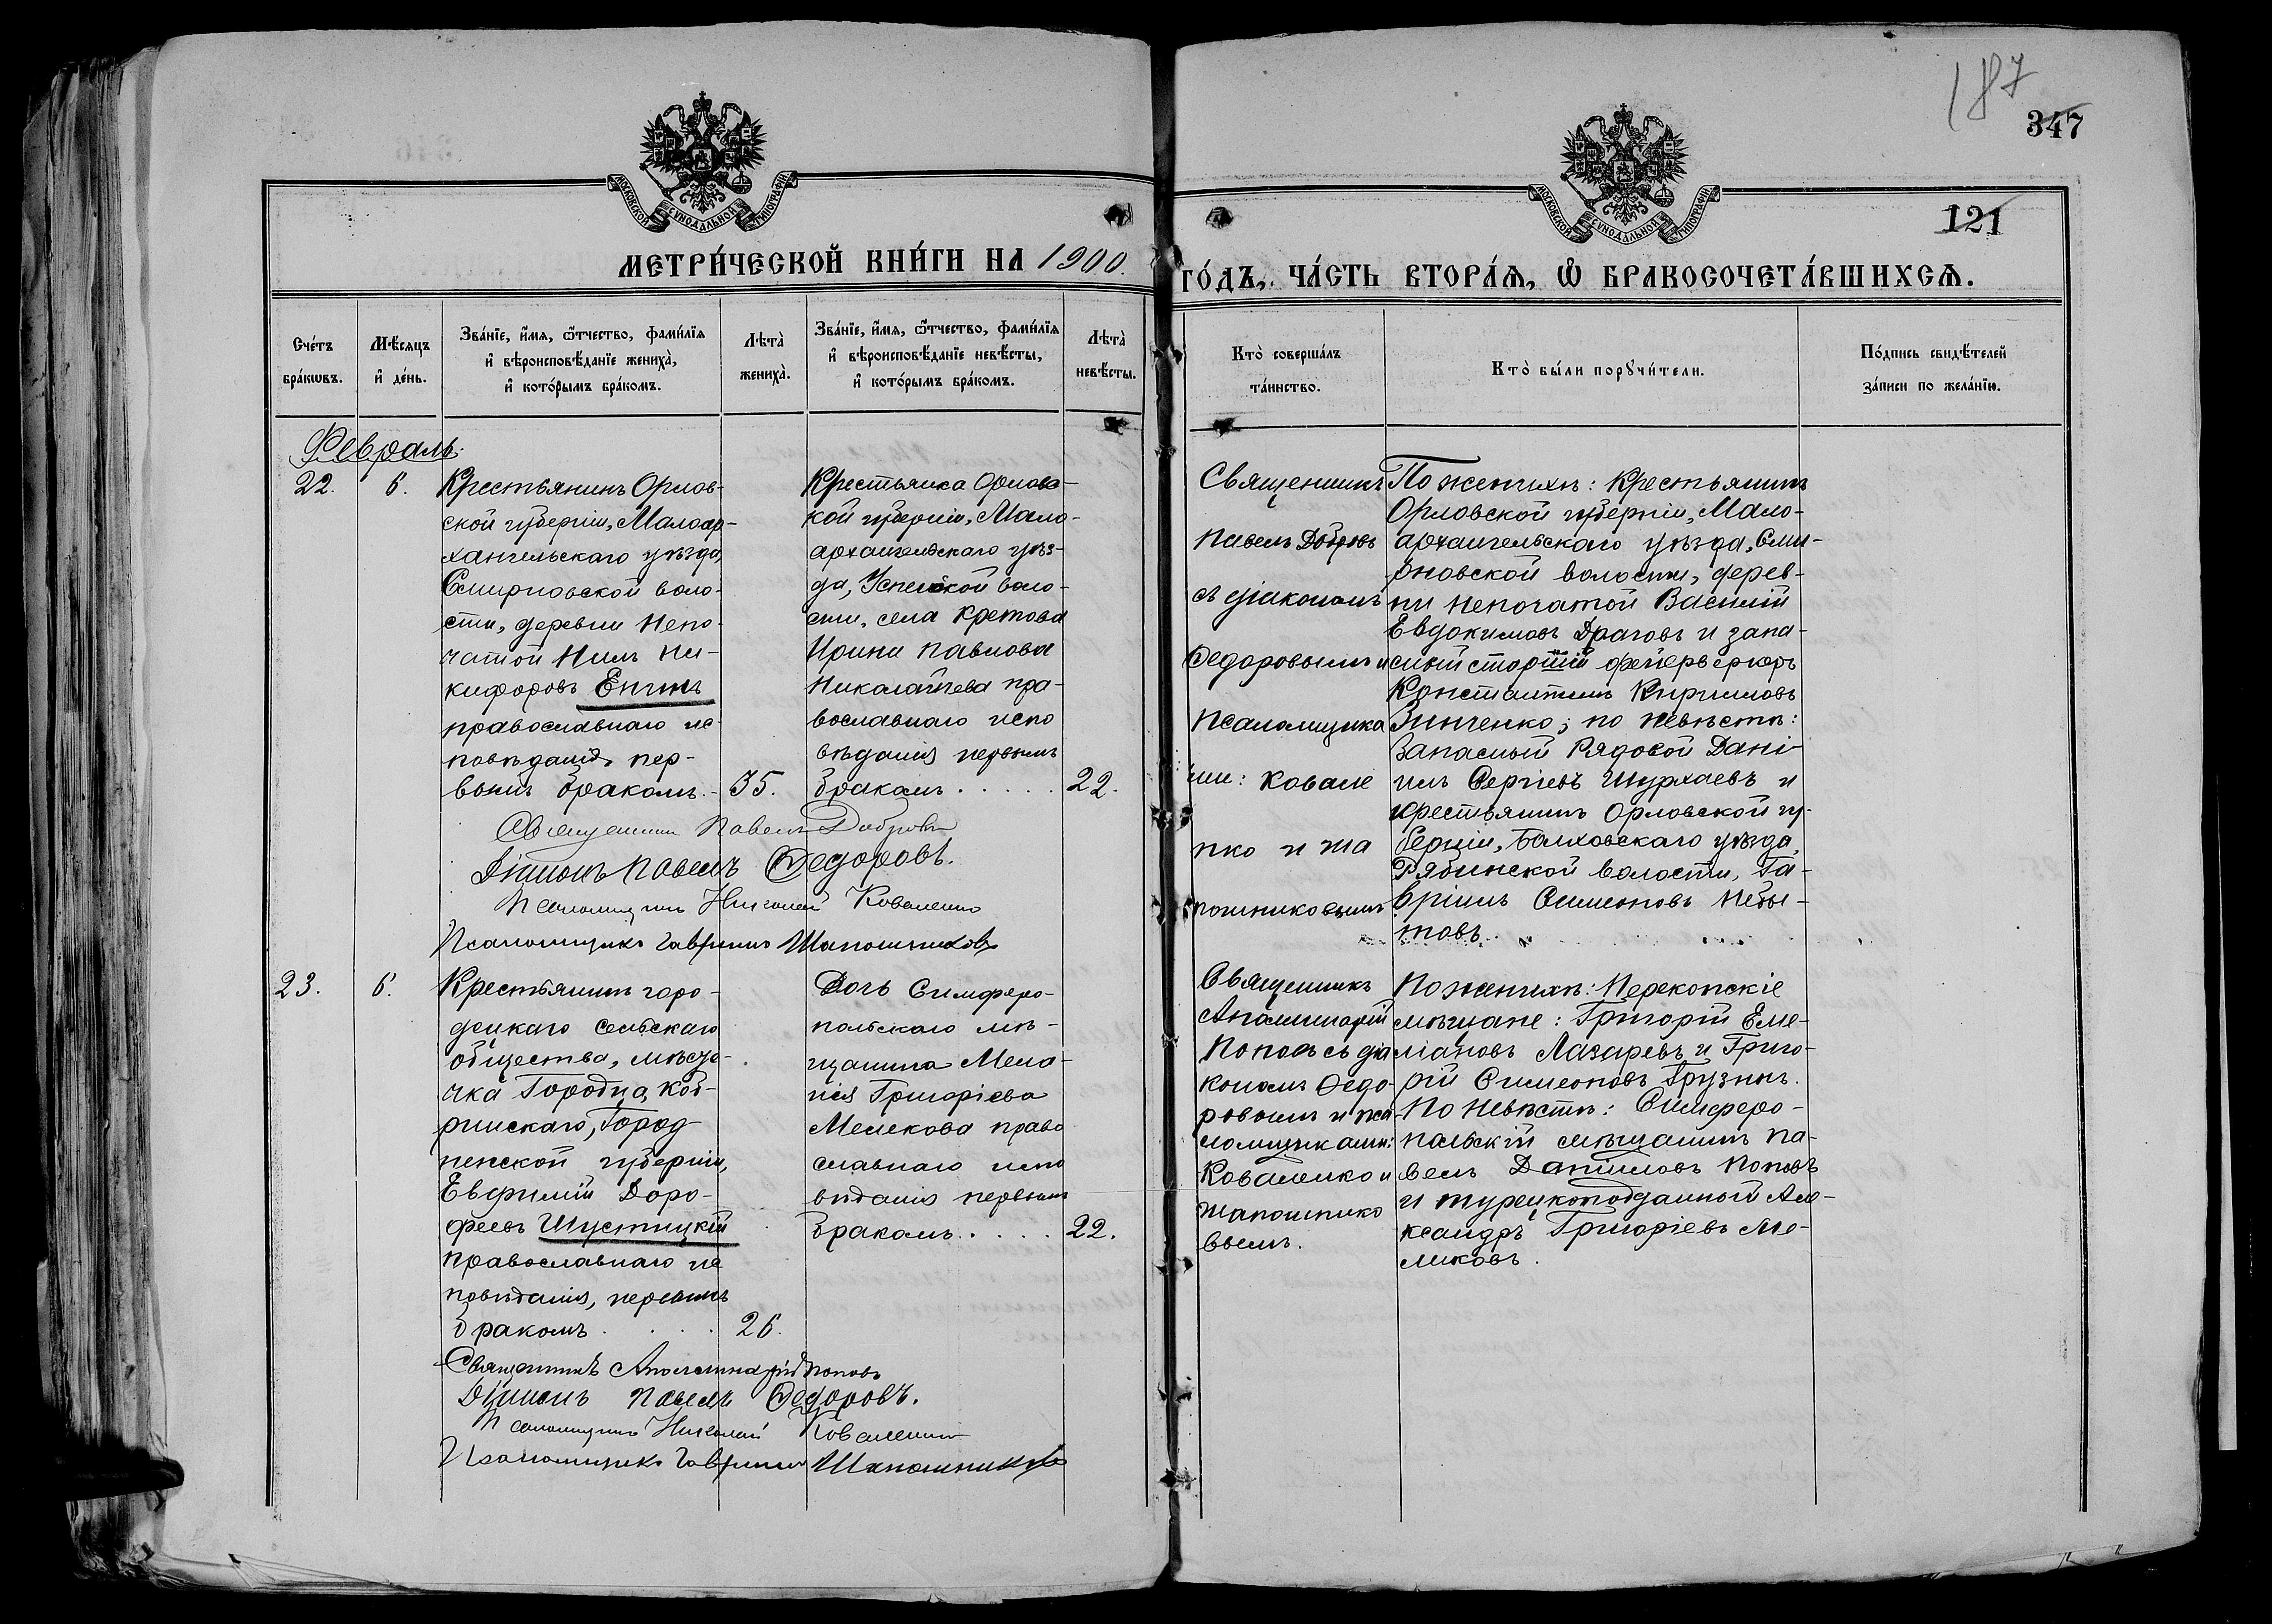 187
347
МОСКОВСКОЙ СѴНОДАЛЬНОЙ ТИПОГРАФІИ
МОСКОВСКОЙ СѴНОДАЛЬНОЙ ТИПОГРАФІИ
121
МЕТРИ́ЧЕСКОЙ КНИ́ГИ НА 1900.
ГО́ДЪ, ЧА́СТЬ ВТОРА́Ѧ, Ѡ҆ БРАКОСОЧЕТА́ВШИХСѦ.
Сче́тъ
бра́кѡвъ.
Мѣ́сѧцъ
и҆ де́нь.
Зва́нїе, и҆́мѧ, ѻ҆́тчество, фами́лїѧ
и҆ вѣроисповѣ́данїе жениха̀,
и҆ кото́рымъ бра́комъ.
Лѣта̀
жениха̀.
Зва́нїе, и҆́мѧ, ѻ҆́тчество, фами́лїѧ
и҆ вѣроисповѣ́данїе невѣ́сты,
и҆ кото́рымъ бра́комъ.
Лѣта̀
невѣ́сты.
Кто̀ соверша́лъ
та́инство.
Кто̀ бы́ли порꙋчи́тели.
По́дпись свидѣ́телей
за́писи по жела́нїю.
Февраль.
22.
6.
Крестьянинъ Орлов-
ской губерніи, Малоар-
хангельскаго уѣзда,
Смирновской воло-
сти, деревни Непо-
чатой Нилъ Ни-
кифоровъ Енинъ
православнаго ис-
повѣданія, пер-
вымъ бракомъ.-
35.
Крестьянка Орловс-
кой губерніи, Мало-
архангельскаго уѣз-
да, Успенской воло-
сти, села Кретова
Ирина Павлова
Николайчева пра-
вославнаго испо
вѣданія первымъ
бракомъ . . . . .
22.
Священникъ
Павелъ Добровъ
съ діакономъ
Федоровымъ и
псаломщика
ми: Ковале
нко и Ша
пошниковымъ
По женихѣ: Крестьянинъ
Орловской губерніи, Мало-
архангельскаго уѣзда, Сми-
рновской волости, дерев-
ни Непочатой Василій
Евдокимовъ Драговъ и запа-
сный старшій фейерверкеръ
Константинъ Кириловъ
Зинченко; по невѣстѣ:
Запасный Рядовой Дані-
илъ Сергіевъ Шурхаевъ и
крестьянинъ Орловской гу-
берніи, Болховскаго уѣзда,
Рябинской волости, Га-
вріилъ Симеоновъ Небы-
товъ.
Священникъ Павелъ Добровъ
Діаконъ Павелъ Федоровъ.
Псаломщикъ Николай Коваленко
Псаломщикъ Гавріилъ Шапошниковъ
23.
6.
Крестьянинъ горо-
децкаго сельскаго
общества, мѣсте-
чка Городца, Коб-
ринскаго, Город-
ненской губерніи,
Евфимій Доро-
феевъ Шустицкій
православнаго ис
повѣданія, первымъ
бракомъ . . . .
26.
Дочь Симферо-
польскаго мѣ-
щанина Мела-
нія Григоріева
Меликова право
славнаго испо
вѣданія первымъ
бракомъ. . . . .
22.
Священникъ
Аполлинарій
Поповъ съ діа
кономъ Федо-
ровымъ и пса
ломщиками:
Коваленко и
Шапошнико
вымъ.
По женихѣ: Перекопскіе
мѣщане: Григорій Еме-
ліановъ Лазаревъ и Григо-
рій Симеоновъ Грузинъ.
По невѣстѣ: Симферо-
польскій мѣщанинъ Па-
велъ Даниловъ Поповъ
и турецкоподданный Але-
ксандръ Григоріевъ Ме-
ликовъ.
Священникъ Аполлинарій Поповъ
Діаконъ Павелъ Федоровъ.
Псаломщикъ Николай Коваленко
Псаломщикъ Гавріилъ Шапошниковъ